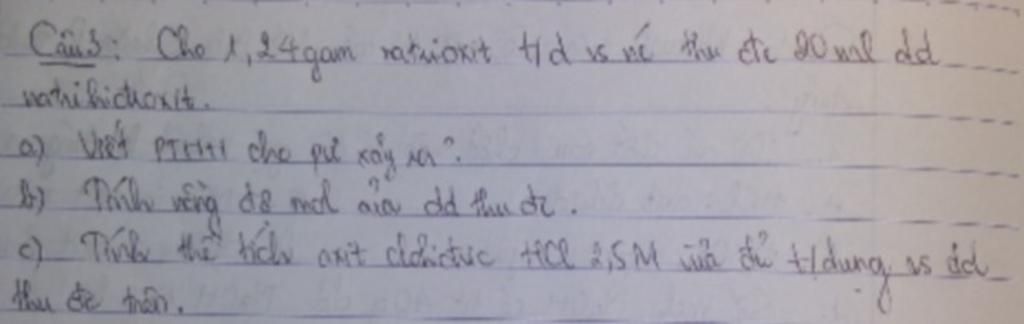 Câu 3: Cho 1,24 gam natrioxit t/d vs nc thu đc 20 ml dd
natrihidroxit.
a) Viết PTHH cho pư xảy ra?
b) Tính nồng độ mol của dd thu đc.
c) Tính thể tích axit clohidric HCl 2,5M vừa đủ t/dụng vs dd
thu đc trên.